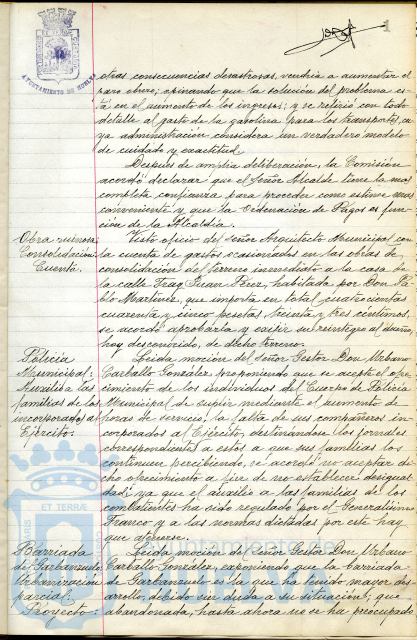 AYUNTAMIENTO DE HUELVA
1
otras consecuencias desastrosas, vendría a aumentar el
paro obrero; opinando que la solución del problema es-
tá en el aumento de los ingresos; y se refirió con todo
detalle al gasto de la gasolina para los transportes, cu-
ya administración considera un verdadero modelo
de cuidado y exactitud.
Después de amplia deliberación, la Comisión
acordó declarar que el Señor Alcalde tiene la más
completa confianza para proceder como estime más
conveniente y que la Ordenación de Pagos es fun-
ción de la Alcaldía.
Obra ruinosa:
Consolidación
Cuenta.
Visto oficio del Señor Arquitecto Municipal con
la cuenta de gastos ocasionados en las obras de
consolidación del terreno inmediato a la casa de
la calle Fray Juan Pérez, habitada por Don Pa-
blo Martínez, que importa en total cuatrocientas
cuarenta y cinco pesetas treinta y tres céntimos,
se acordó aprobarla y exigir su reintegro al dueño,
hoy desconocido, de dicho terreno.
Policía
Municipal:
Auxilio a las
familias de los
incorporados al
Ejército:
Leída moción del Señor Gestor Don Urbano
Carballo González, proponiendo que se acepte el ofre-
cimiento de los individuos del Cuerpo de Policía
Municipal de suplir mediante el aumento de
horas de servicio, la falta de sus compañeros in-
corporados al Ejército, destinándose los jornales
correspondientes a estos a que sus familias los
continuen percibiendo, se acordó no aceptar di-
cho ofrecimiento a fin de no establecer desigual-
dad, ya que el auxilio a las familias de los
combatientes ha sido regulado por el Generalísimo
Franco y a las normas dictadas por este hay
que atenerse.
Barriada
de Garbanzuelo
Urbanización
parcial:
Proyecto:
Leída moción del Señor Gestor Don Urbano
Carballo González, exponiendo que la barriada
de Garbanzuelo es la que ha tenido mayor des-
arrollo, debido sin duda a su situación; que
abandonada, hasta ahora no se ha preocupado
ET TERRÆ
Ayuntamiento de